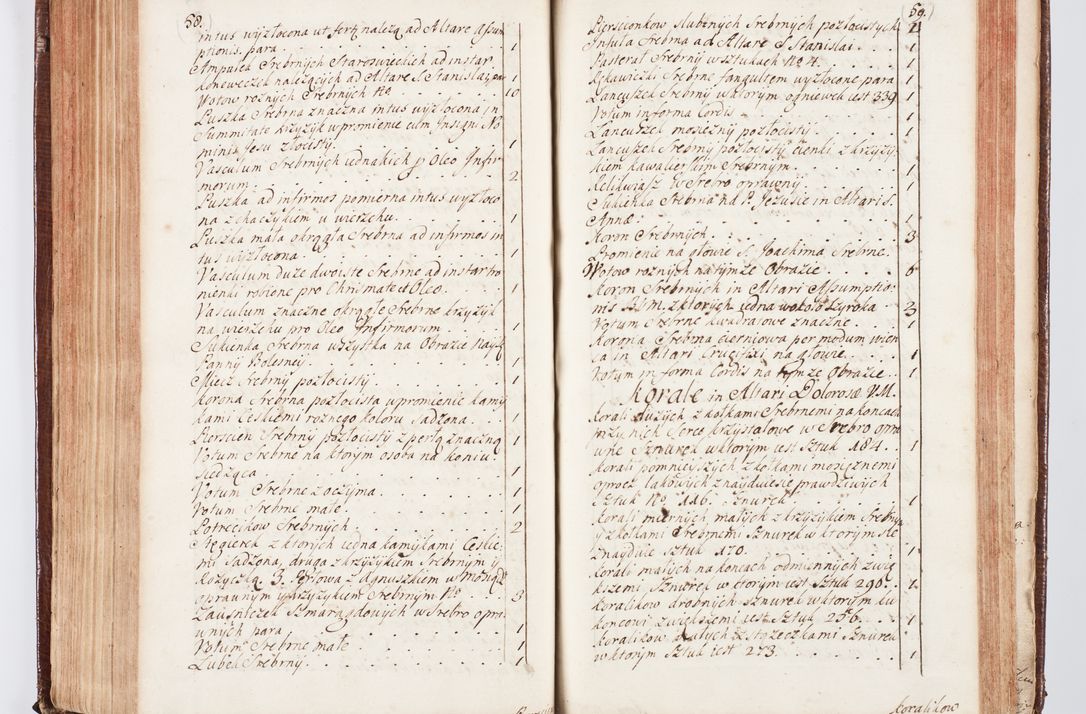 58.
intus wyzłocona ut fertz należą ad Altare Assum
ptionis. para . 1
Ampułek Srebrnych Staroswieckich ad instar
koneweczek należących ad Altare S. Stanislai, pa 1
Wotow roznych Srebrnych No . 10
Puszka Srebrna znaczna intus wyzłocona in
Summitate krzyżyk w promienie cum Insigni No
minis Jesu złocisty. 1
Vasculum Srebrnych iednakich p Oleo Infir
morum. 2
Puszka ad infirmos pomierna intus wyzłoco
na z haczykiem u wierzchu. 1
Puszka mała okrągła Srebrna ad infirmos in
tus wyzłocona 1
Vasculum duze dwoiste Srebrne ad instar
nienki robione pro Chrismate et Oleo. 1
Vasculum znaczne okrągłe Srebrne krzyżyk
na wierzchu pro Oleo Infirmorum . 1
Sukienka Srebrna wszystka na Obrazie Nayś
Panny Bolesney . 1
Miecz Srebrny pozłocisty . 1
Korona Srebrna pozłocista w promienie kamy
kami Czeskiemi roznego koloru sadzona . 1
Pierscien Srebrny pozłocisty z perłą znaczną 1
Votum Srebrne na ktorym osoba na koniu
siedząca . 1
Votum Srebrne z oczyma . 1
Votum Srebrne małe . 1
Potrecikow Srebrnych . 2
Stęgierek z ktorych iedna kamykami Czeskie
mi sadzona, druga z krzyżykiem Srebrnym y
Rożyczką. 3. Perłowa z Agnuszkiem w mosiądz
oprawnym y krzyżykiem Srebrnym No . 3
Zausniczek Szmaragdowych w Srebro opra
wnych para . 1
Votum Srebrne małe . 1
Łubek Srebrny . 1
59.
Pierscionkow slubnych Srebrnych pozłocistych 2
Infuła Srebrna ad Altare S Stanislai . 1
Pastorał Srebrny w sztukach No 4 . 1
Rękawiczki Srebrne fangultem wyzłocone para 1
Łancuszek Srebrny w ktorym ogniewek iest 339 1
Votum in forma Cordis . 1
Łancuszek mosiężny pozłocisty . 1
Łancuszek Srebrny pozłocisty cienki z krzyży
kiem kawalerskim Srebrnym . 1
Relikwiasz w Srebro oprawny . 1
Sukienka Srebrna na P. Jezusie in Altari S.
Annæ . 1
Koron Srebrnych . 3
Promienie na głowie S. Joachima Srebrne.
Wotow roznych na tymze Obrazie . 6
Koron Srebrnych in Altari Assumptio
nis B.V.M. z ktorych iedna wokoło szyroka 3
Votum Srebrne kwadratowe znaczne . 1
Korona Srebrna cierniowa per modum wien
ca in Altari Crucifixi na głowie . 1
Votum in forma Cordis na tymze Obrazie . 1
Korale in Altari Dolorosæ V.M.
Korali duzych z kołkami Srebrnemi na koncach
przy nich Serce krzyształowe w Srebro opra
wne Sznurek w ktorym iest Sztuk 184. 1
Korali pomnieyszych z kołkami mosiężnemi
oprocz łakowych znayduiesie prawdziwych
Sztuk No 116. Sznurek . 1
Korali miernych małych z krzyżykiem Srebrnym
y z kołkami Srebrnemi Sznurek w ktorym się
znayduie Sztuk 170. 1
Korali małych na koncach odmiennych zwię
kszemi Sznurek w ctorym iest Sztuk 290. 1
Koralikow drobnych Sznurek w ktorym ku
koncowi zwiększemi iest Sztuk 256. 1
Koralikow małych z strzeczkami Sznurek
w ktorym Sztuk iest 273. 1
Koralikow